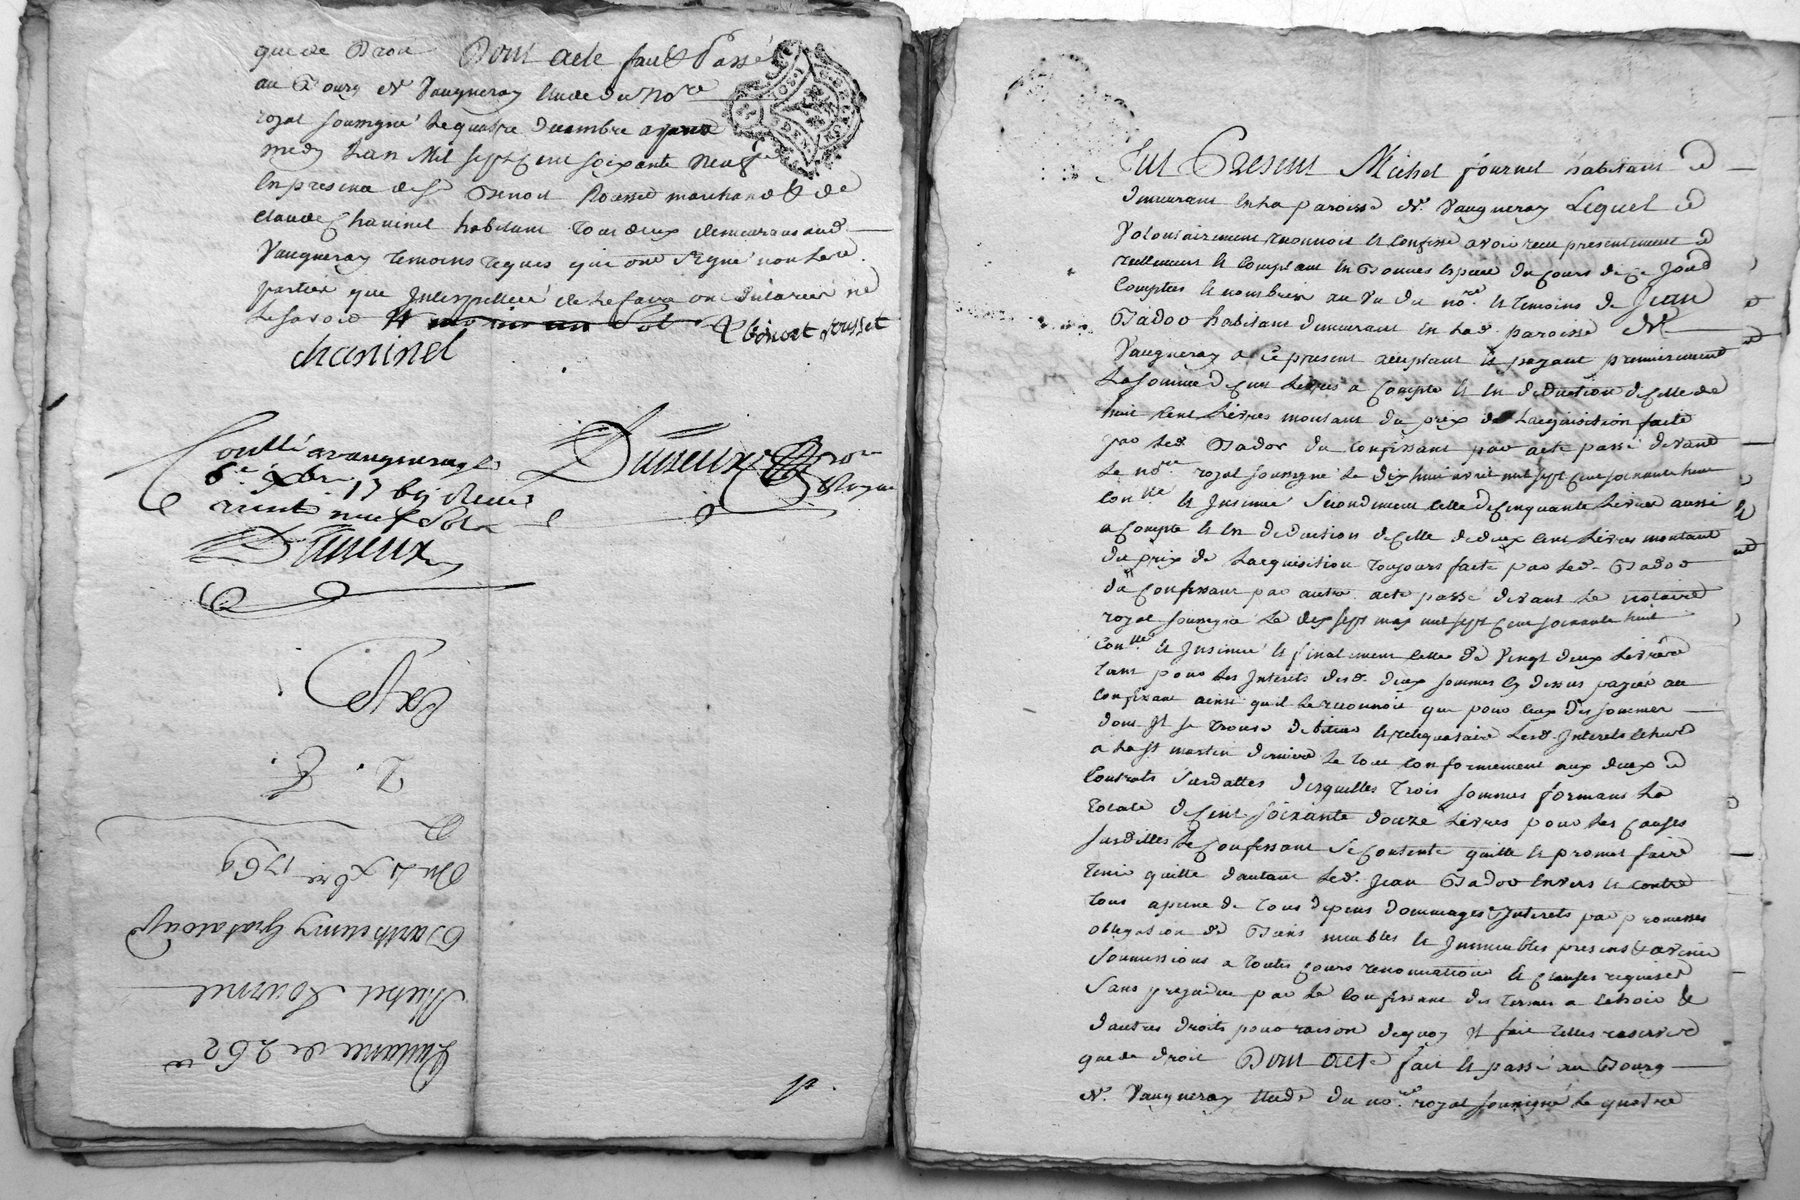 que de Droit Dont acte fait & Passé
au Bourg de Vaugneray Etude du No.re
royal soussigné Le quatre decembre apres
midy Lan Mil sept cent soixante neuf
En presence de Sr Benoit Rousset marchand & de
Claude Chaninel habitant tous deux demeurans aud.
Vaugneray temoins requis qui ont signé non Les
parties que Interpellées de Le faire ont declarées ne
Le savoir Benoit Rousset
chaninel
Conllé a vaugneray le
6e xbre 17 be
vingt neuf sols
Dusseux
Dusseux no.re
Royal
J. C.
Du 4 xbre 1769
Barthelemy Grataloup
Michel Fournel
Quittance de 262
Fut Present Michel fournel habitant et
demeurant En La paroisse de Vaugneray Lequel
Volontairement reconnoit et Confesse avoir receu presentement
reellement et Comptant En Bonnes Especes du Cours de Ce Jour
Comptées et nombrées au Vu du no.re et temoins de Jean
Bador habitant demeurant En Lad. paroisse de
Vaugneray a Ce present acceptant et payant premierement
La somme de Cent Livres a Compte et En deduction de Celle de
huit Cent Livres montant du prix de Lacquisition faite
par Led. Bador du Confessant par acte passé devant
Le no.re royal soussigné Le dix huit avril mil sept cent soixante huit
Con.llé et Insinué Secondement Celle de Cinquante Livres aussi
a Compte et En deduction de Celle de deux Cent Livres montant
du prix de Lacquisition toujours faite par Led. Badot
du Confessant par autre acte passé devant Le notaire
royal soussigné Le dix sept may mil sept cent soixante huit
Con.llé et Insinué et finalement Celle de Vingt deux Livres
tant pour Les Interets desd. deux sommes Cy dessus payées au
Confessant ainsi quil Le reconnoit que pour Ceux des sommes
dont Il se trouve debiteur et reliquataire Lesd. Interets Echus
a La St martin derniere Le tout Conformement aux deux
Contrats Susdattés desquelles trois sommes formans La
totale de Cent soixante douze Livres pour Les Causes
susdittes Le Confessant Se Contente quitte et promet faire
tenir quitte dautant Led. Jean Bador Envers et Contre
tous a peine de tous depens dommages Interets par promesses
obligation de Biens meubles et Immeubles presens & avenir
soumissions a toutes Cours renonciations et Clauses requises
Sans prejudice par Le Confessant des termes a Echoir &
dautres droits pour raison dequoy Il fait telles reserves
que de droit Dont acte fait et passé au Bourg
de Vaugneray Etude du no.re royal soussigné Le quatre